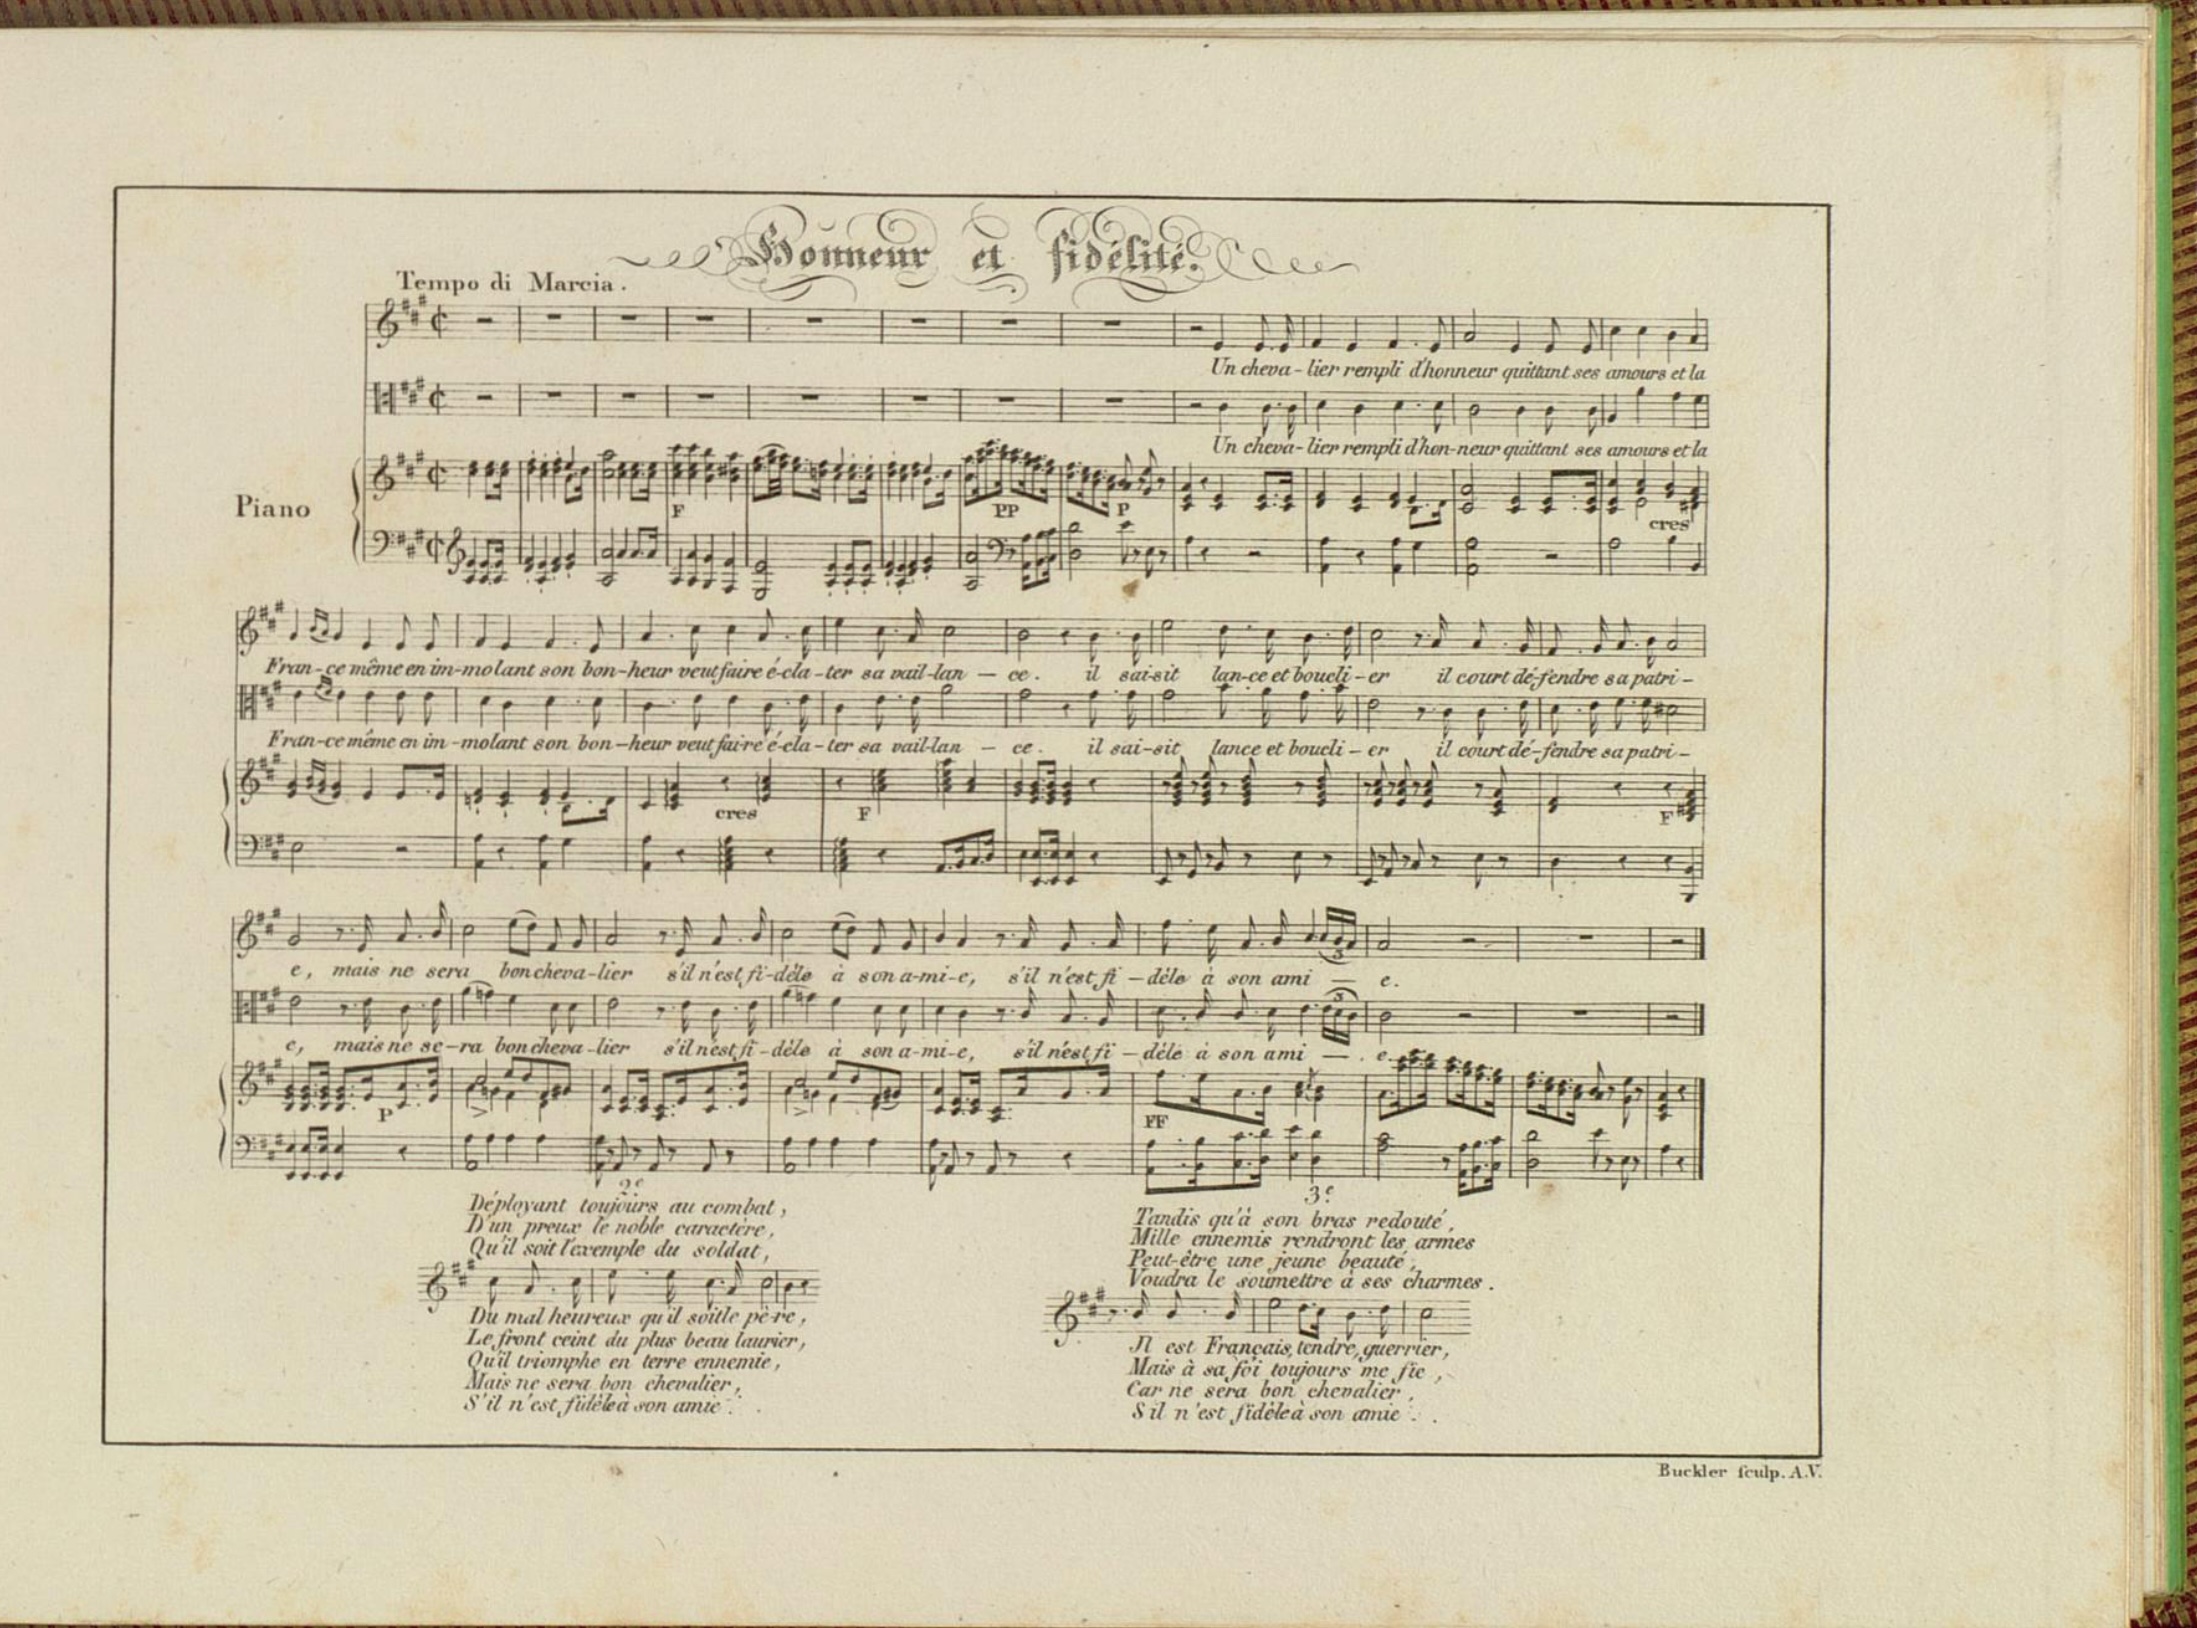 Honneur et fidélité.
Tempo di Marcia.
Un cheva-lier rempli d'honneur quittant ses amours et la
Un cheva-lier rempli d'hon-neur quittant ses amours et la
Piano
F PP P cres
Fran-ce même en im-molant son bon-heur veut faire é-cla-ter sa vail-lan — ce. il sai-sit lan-ce et boucli-er il court dé-fendre sa patri-
Fran-ce même en im-molant son bon-heur veut faire é-cla-ter sa vail-lan — ce. il sai-sit lance et boucli-er il court dé-fendre sa patri-
cres F F
e, mais ne sera bon cheva-lier s'il n'est fi-dèle à son a-mi-e, s'il n'est fi-dèle à son ami — e.
3
3
e, mais ne se-ra bon cheva-lier s'il n'est fi-dèle à son a-mi-e, s'il n'est fi-dèle à son ami — e.
P FF
2e
Déployant toujours au combat,
D'un preux le noble caractère,
Qu'il soit l'exemple du soldat,
Du mal heureux qu'il soit le pè-re,
Le front ceint du plus beau laurier,
Qu'il triomphe en terre ennemie,
Mais ne sera bon chevalier,
S'il n'est fidèle à son amie.
3e
Tandis qu'à son bras redouté,
Mille ennemis rendront les armes
Peut-être une jeune beauté,
Voudra le soumettre à ses charmes.
Il est Français, tendre, guerrier,
Mais à sa foi toujours me fie,
Car ne sera bon chevalier,
S'il n'est fidèle à son amie.
Buckler sculp. A.V.